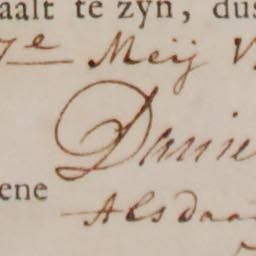 aalt te zyn, dus
7e Meij V
Danie
ene
Alsdaa